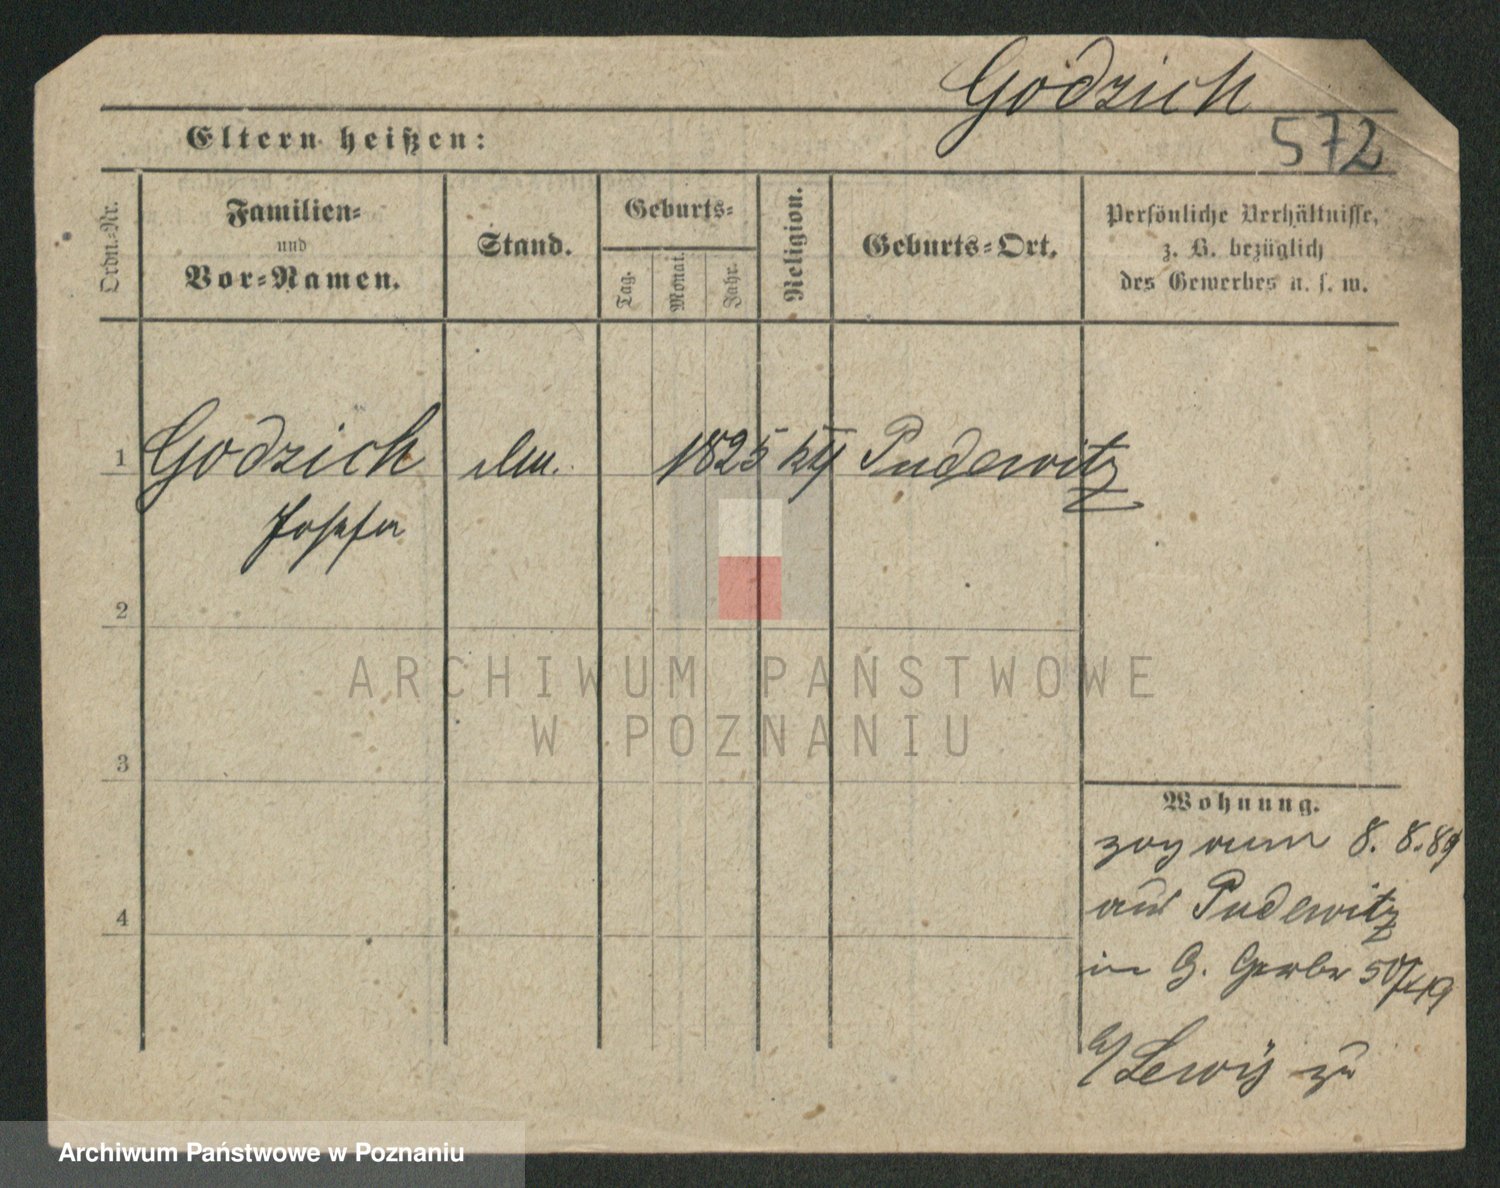 Godzich
572
Eltern heißen:
Ordn.-Nr.
Familien-
und
Vor-Namen.
Stand.
Geburts-
Tag.
Monat.
Jahr.
Religion.
Geburts-Ort.
Persönliche Verhältnisse,
z. B. bezüglich
des Gewerbes u. s. w.
1 Godzich 1825 Pudewitz
Josefa
2
3
4
Wohnung.
zog am 8. 8. 89
aus Pudewitz
in G. Gerber
zu
ARCHIWUM PAŃSTWOWE
W POZNANIU
Archiwum Państwowe w Poznaniu